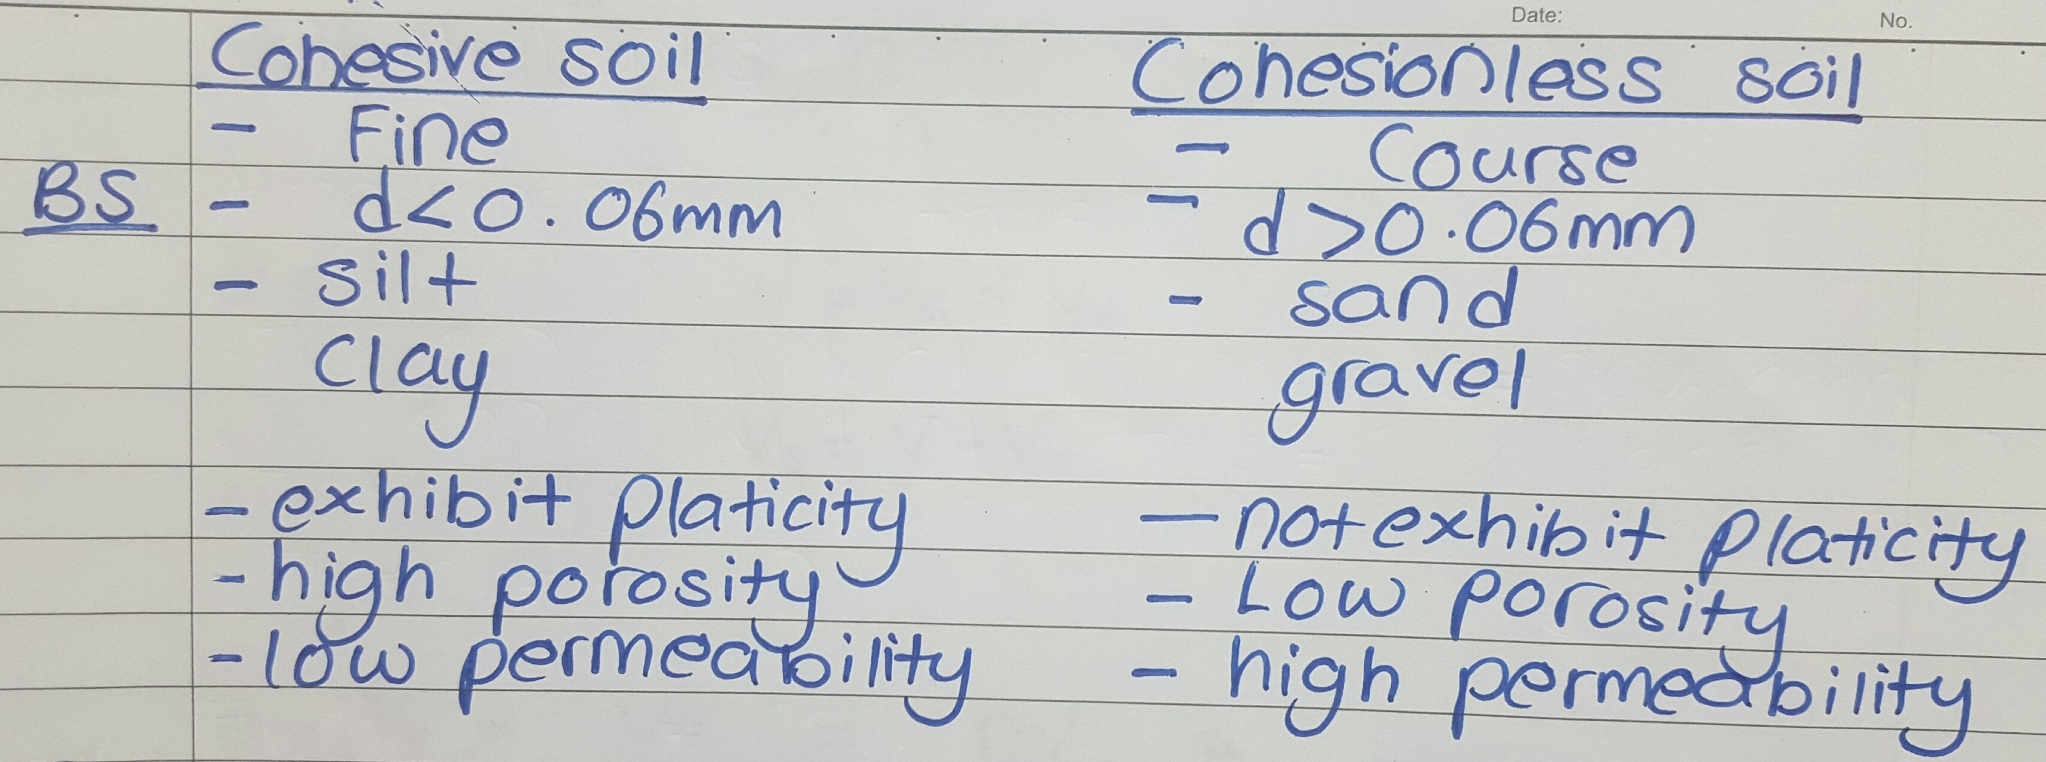 Date: No.
Cohesive soil Cohesionless soil
- Fine - Course
BS - d<0.06mm - d>0.06mm
- silt - sand
Clay gravel
- exhibit platicity - not exhibit platicity
- high porosity - Low porosity
- low permeability - high permeability